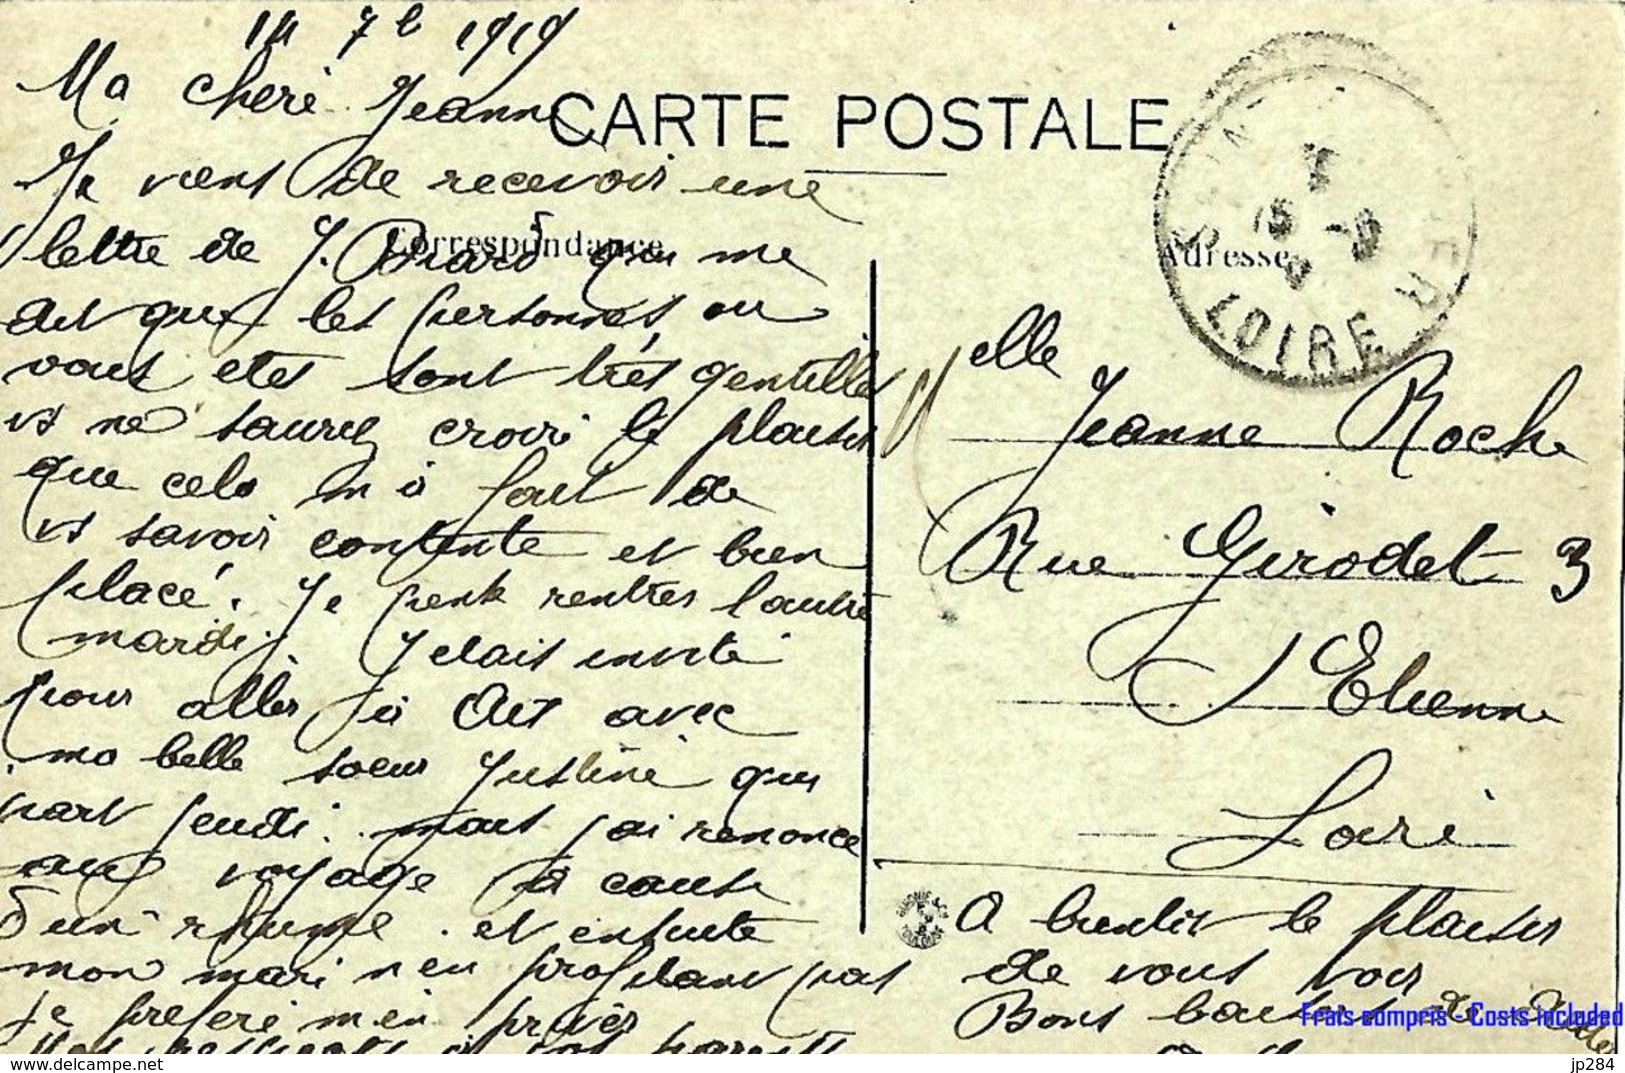 14 7b 1919
Ma cheri Jeanne
CARTE POSTALE
Je viens de recevoir une
lettre de J. Biard qui me
Correspondance
Adresse
LOIRE
dit que les personnes ou
vous etes sont très gentilles
vs ne saurez croire le plaisir
que cela m'a fait de
vs savoir contente et bien
placé. Je pense rentrer l'autre
mardi. J'etais invité
pour aller à Aix avec
ma belle soeur Justine qui
part jeudi. mais j'ai renonce
au voyage à cause
d'un rhume. et ensuite
mon mari n'en profitant pas
je prefere m'en priver
Mes respects à vos parents
Melle
Jeanne Roche
Rue Girodet 3
St Etienne
Loire
A bientôt le plaisir
de vous voir
Bons baisers de
Frais compris - Costs included
jp284